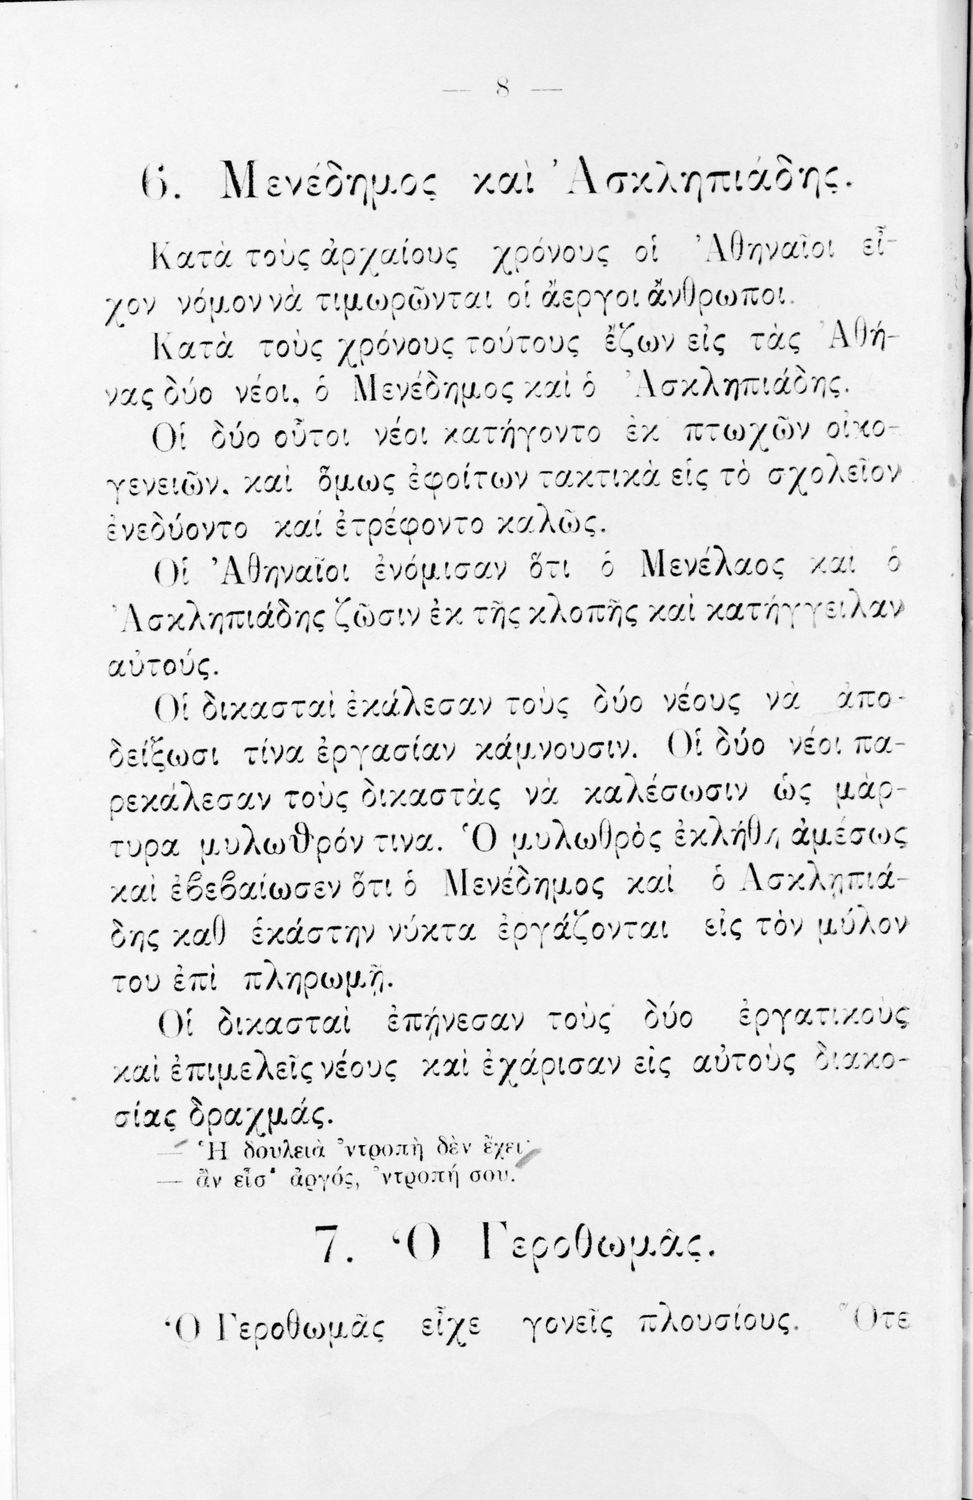 — 8 —
6. Μενέδημος καὶ Ἀσκληπιάδης.
Κατὰ τοὺς ἀρχαίους χρόνους οἱ Ἀθηναῖοι εἶ-
χον νόμον νὰ τιμωρῶνται οἱ ἄεργοι ἄνθρωποι.
Κατὰ τοὺς χρόνους τούτους ἔζων εἰς τὰς Ἀθή-
νας δύο νέοι, ὁ Μενέδημος καὶ ὁ Ἀσκληπιάδης.
Οἱ δύο οὗτοι νέοι κατήγοντο ἐκ πτωχῶν οἰκο-
γενειῶν, καὶ ὅμως ἐφοίτων τακτικὰ εἰς τὸ σχολεῖον
ἐνεδύοντο καί ἐτρέφοντο καλῶς.
Οἱ Ἀθηναῖοι ἐνόμισαν ὅτι ὁ Μενέλαος καὶ ὁ
Ἀσκληπιάδης ζῶσιν ἐκ τῆς κλοπῆς καὶ κατήγγειλαν
αὐτούς.
Οἱ δικασταὶ ἐκάλεσαν τοὺς δύο νέους νὰ ἀπο-
δείξωσι τίνα ἐργασίαν κάμνουσιν. Οἱ δύο νέοι πα-
ρεκάλεσαν τοὺς δικαστὰς νὰ καλέσωσιν ὡς μάρ-
τυρα μυλωθρόν τινα. Ὁ μυλωθρὸς ἐκλήθη ἀμέσως
καὶ ἐβεβαίωσεν ὅτι ὁ Μενέδημος καὶ ὁ Ἀσκληπιά-
δης καθ ἑκάστην νύκτα ἐργάζονται εἰς τὸν μύλον
του ἐπὶ πληρωμῇ.
Οἱ δικασταὶ ἐπῄνεσαν τοὺς δύο ἐργατικοὺς
καὶ ἐπιμελεῖς νέους καὶ ἐχάρισαν εἰς αὐτοὺς διακο-
σίας δραχμάς.
— Ἡ δουλειὰ ᾿ντροπὴ δὲν ἔχει·
— ἂν εἶσ' ἀργός, ᾿ντροπή σου.
7. Ὁ Γεροθωμᾶς.
Ὁ Γεροθωμᾶς εἶχε γονεῖς πλουσίους. Ὅτε